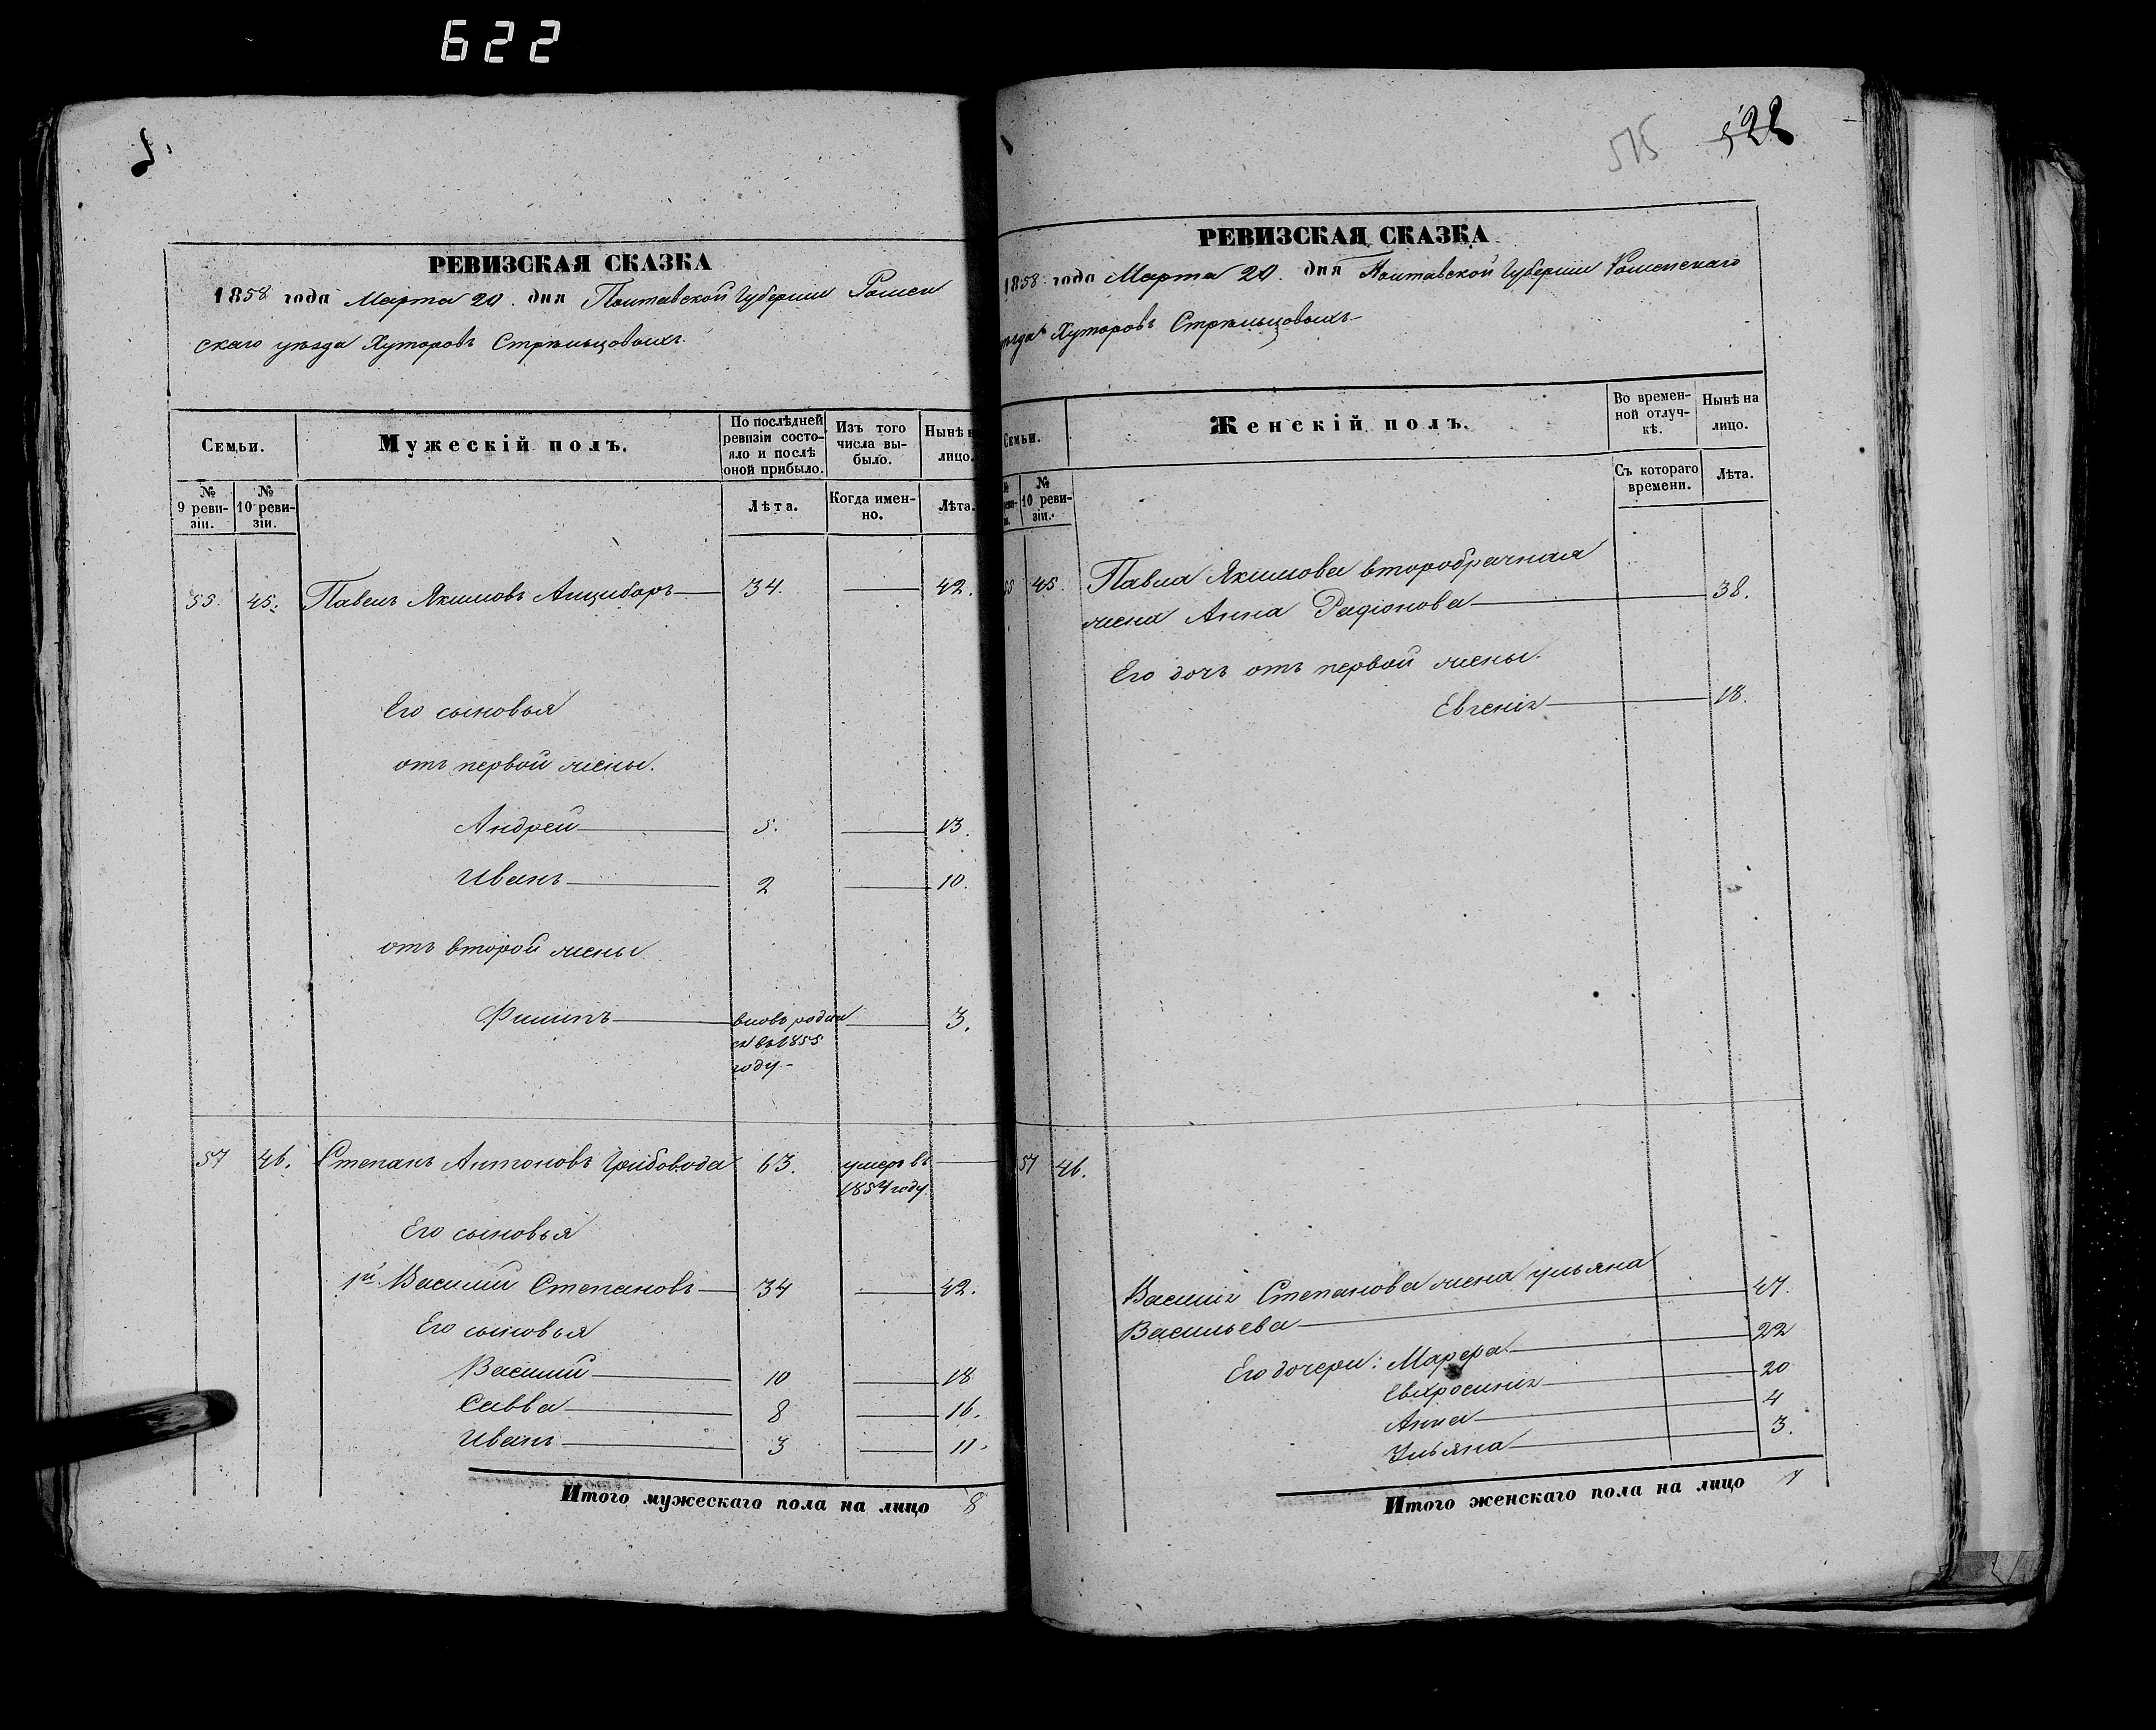 622
РЕВИЗСКАЯ СКАЗКА
1858 года Марта 20. дня Полтавской Губернии Ромен
скаго уѣзда Хуторовъ Стрѣльцовыхъ.
Семьи.
Мужескій полъ.
По послѣдней ревизіи состо-
яло и послѣ
оной прибыло.
Изъ того
числа вы-
было.
Нынѣ н
лицо.
№
9 реви-
зіи.
№
10 реви-
зіи.
Лѣта.
Когда имен-
но.
Лѣта.
55. 45. Павелъ Якимовъ Анцыборъ 34. 42.
Его сыновья
отъ первой жены.
Андрей 5. 13.
Иванъ 2 10.
отъ второй жены
Филипъ вновь родил 3.
ся въ 1855
году.
57 46. Степанъ Антоновъ Грибовода 63. умеръ въ
1854 году.
Его сыновья
1й Василий Степановъ 34 42.
Его сыновья
Василий 10 18
Савва 8 16.
Иванъ 3 11.
Итого мужескаго пола на лицо 8
515 522
РЕВИЗСКАЯ СКАЗКА
1858 года Марта 20. дня Полтавской Губернии Роменскаго
ѣзда Хуторовъ Стрѣльцовыхъ
Семьи.
Женскій полъ.
Во времен-
ной отлуч-
кѣ.
Нынѣ на
лицо.
№
10 реви-
зіи.
Съ котораго
времени.
Лѣта.
55 45. Павла Якимова второбрачная
жена Анна Радіонова 38.
Его дочь отъ первой жены.
Евгенія 18.
57 46.
Василия Степанова жена Ульяна
Васильева 47.
Его дочери: Марфа 22
Евхросинія 20
Анна 4
Ульяна 3.
Итого женскаго пола на лицо 7